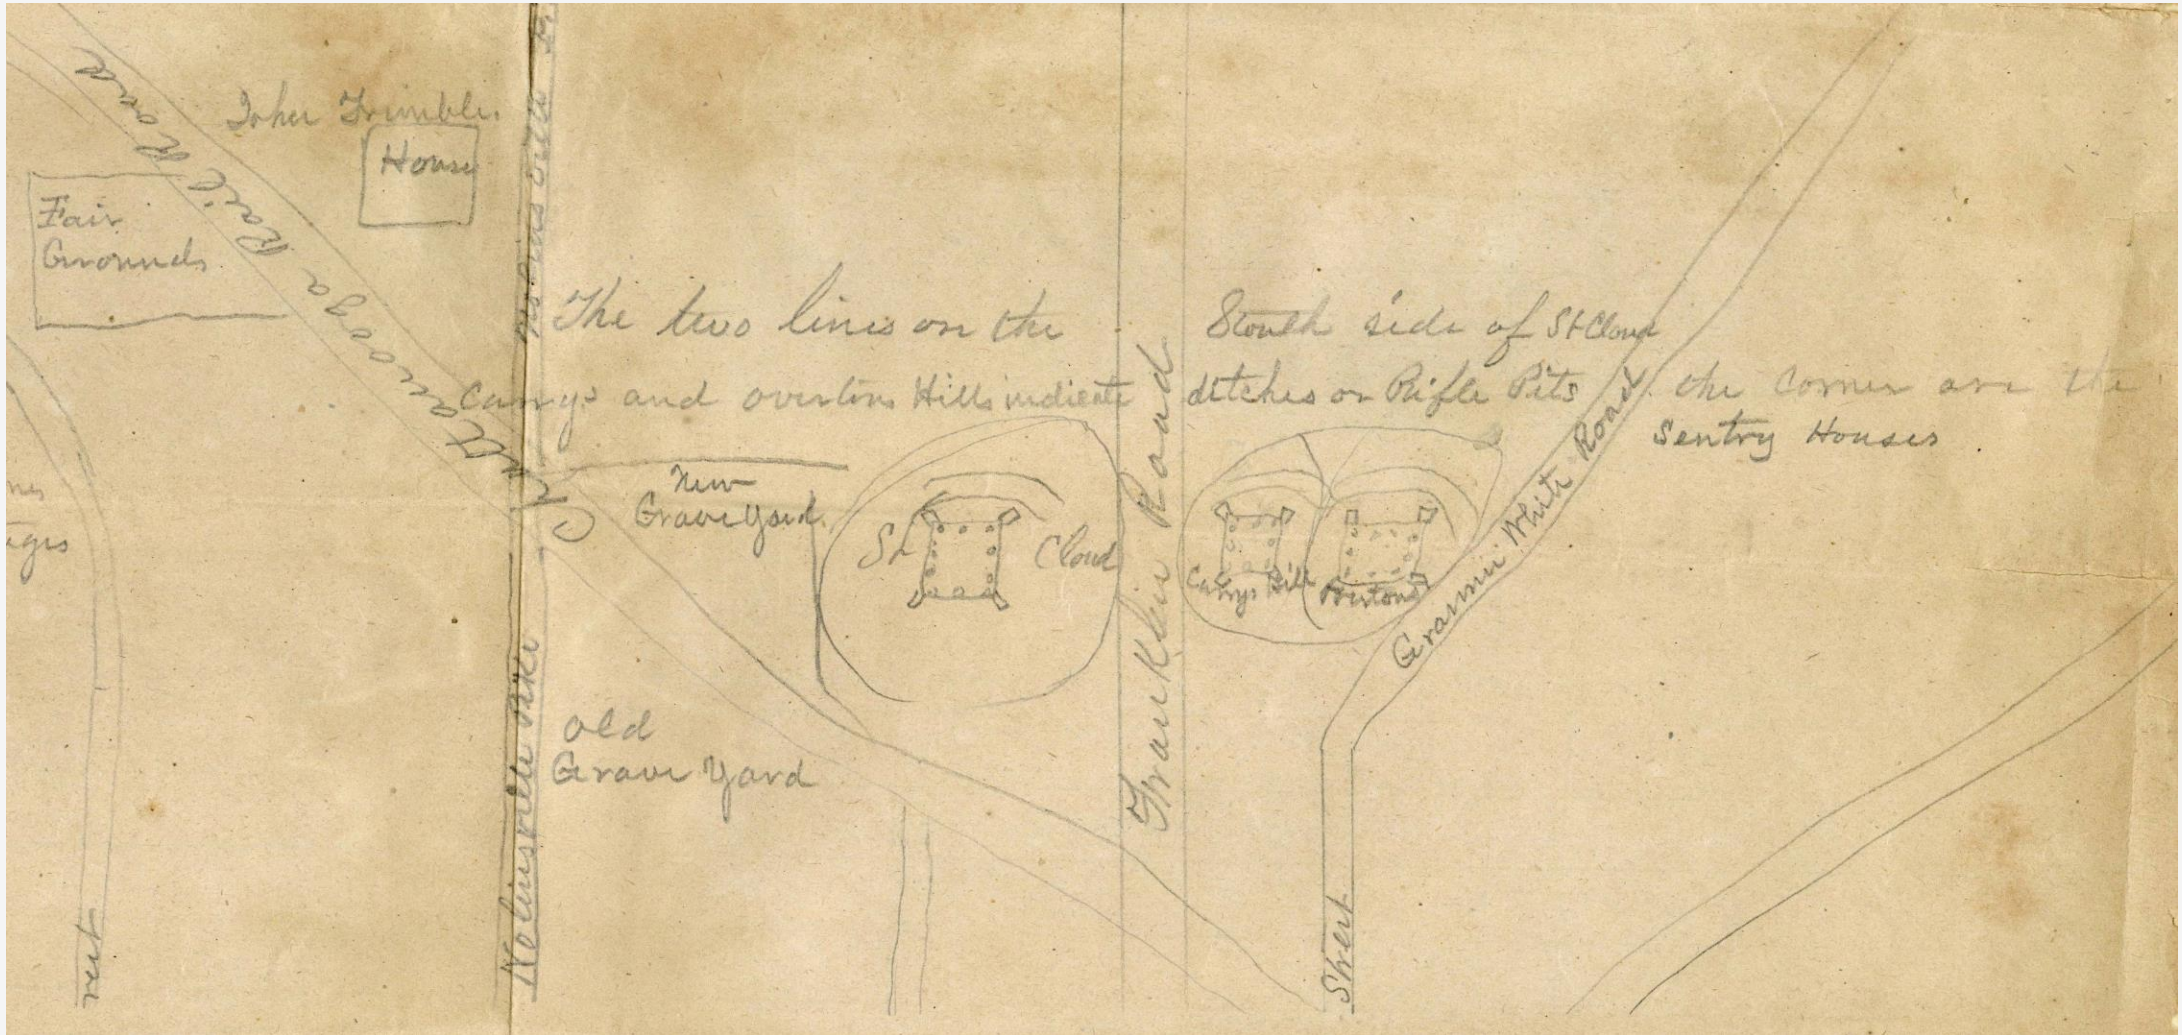 Rail Road
John Trimble.
House
Fair
Grounds
The two lines on the South side of St Cloud
Carrys and overtons Hills indicate ditches or Rifle Pits the Corner are the
Sentry Houses.
Chattanooga
New
Grave Yard.
St Cloud
Franklin Road
Carrys Hill
Overtons
Grannie White Road
Old
Grave Yard
Nolinsville Pike
Street